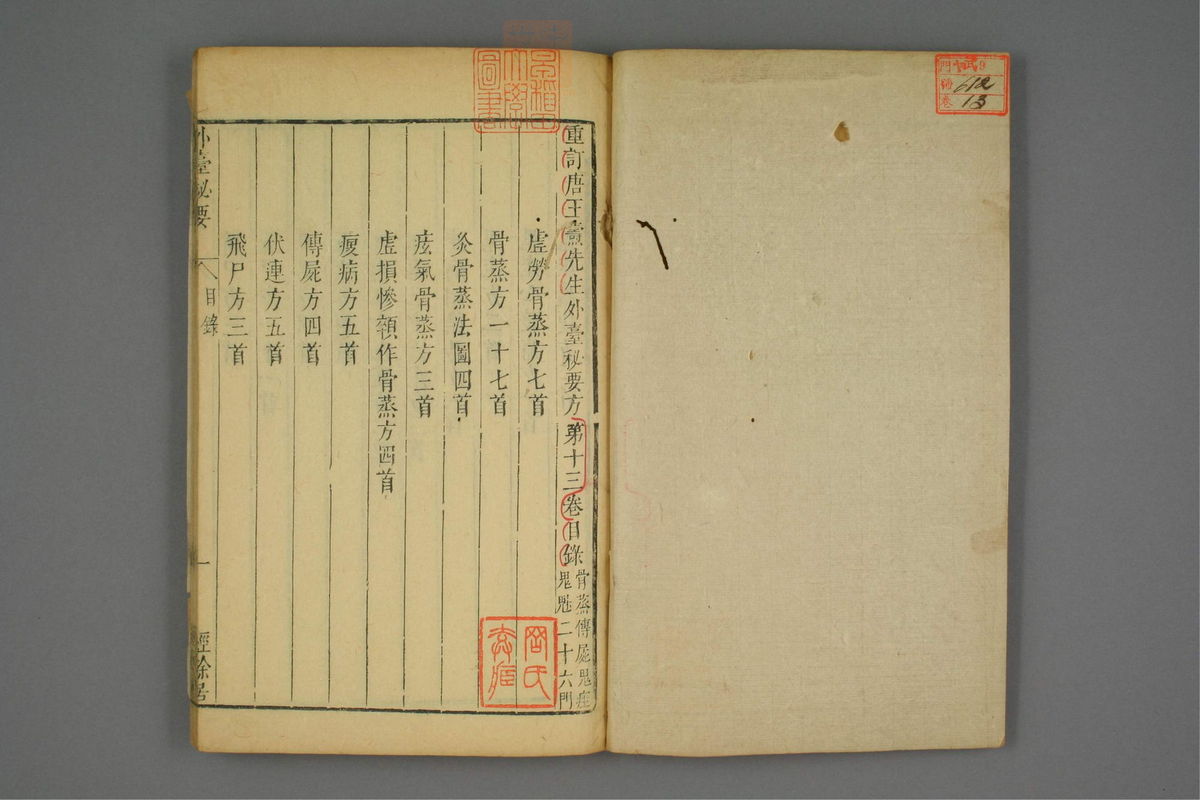 重訂唐王燾先生外臺秘要方第十三卷目錄
骨蒸傳屍鬼疰
鬼魅二十六門
虛勞骨蒸方七首
骨蒸方一十七首
灸骨蒸法圖四首
痃氣骨蒸方三首
虛損慘顇作骨蒸方四首
瘦病方五首
傳屍方四首
伏連方五首
飛尸方三首
外臺秘要
目錄
一
經餘居
早稻田
大學
圖書
門 9
號 612
卷 13